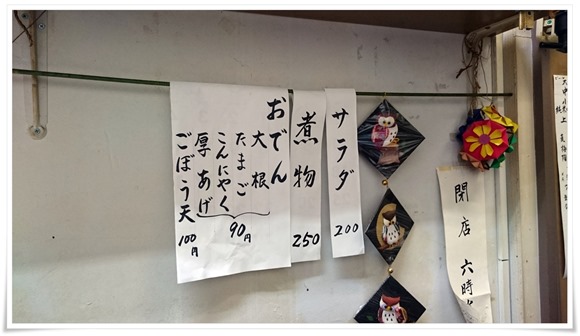 サラダ
200
煮物
250
おでん
大根
たまご
こんにゃく
厚あげ
90円
ごぼう天
100円
閉店 六時